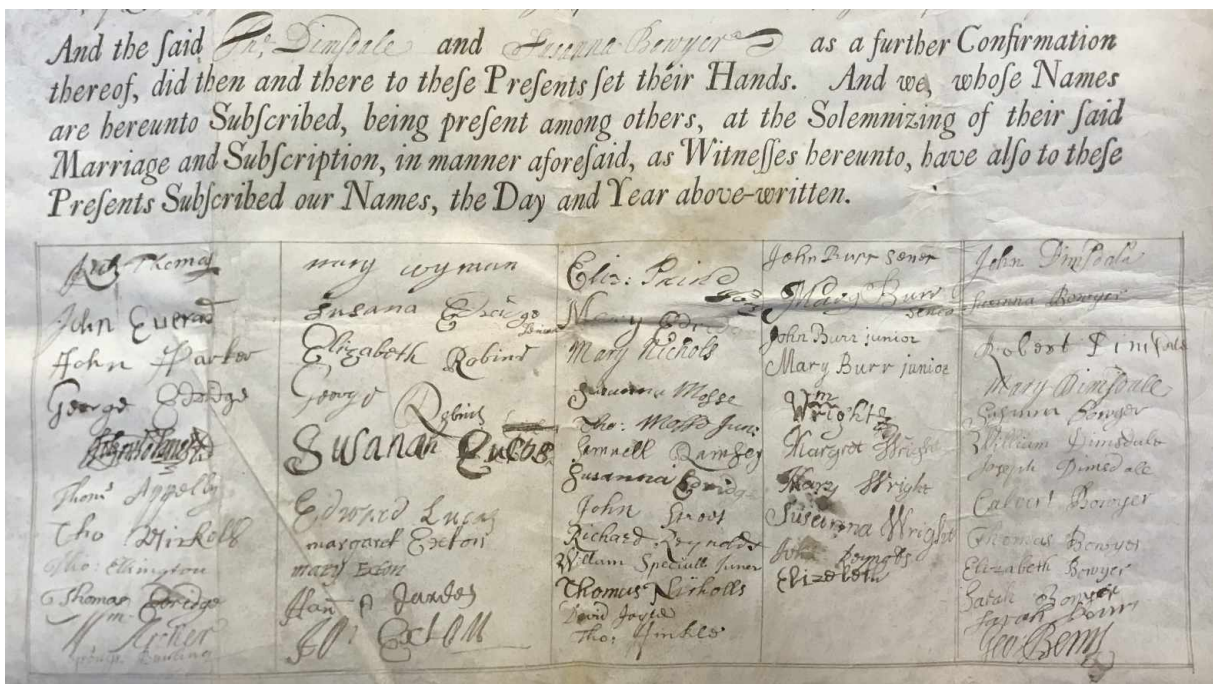 And the ſaid Jnº Dimsdale and Susanna Bowyer as a further Confirmation
thereof, did then and there to theſe Preſents ſet their Hands. And we, whoſe Names
are hereunto Subſcribed, being preſent among others, at the Solemnizing of their ſaid
Marriage and Subſcription, in manner aforeſaid, as Witneſſes hereunto, have alſo to theſe
Preſents Subſcribed our Names, the Day and Year above-written.
Thomas
John Everad
John Parker
George Edridge
Thoms Appelby
Tho
Tho: Ellington
Thomas Edridge
Archer
mary wyman
Susana Edridge
Elizabeth Robins
George Robins
Susanah Lucas
Edward Lucas
margaret Exton
mary Exton
Exton
Eliz:
Mary
Mary Nichols
Susanna Mosse
Tho: Junr
Samuell Ramsey
Susanna Edridge
John
Richard Reynolds
William Juner
Thomas Nicholls
David
Tho: Hinkls
John Burr Sener
Mary Burr Sener
John Burr junior
Mary Burr junior
Wm Wright
Margret Wright
Mary Wright
Suseanna Wright
John
Elizebeth
John Dimsdale
Susanna Bowyer
Robert Dimsdale
Mary Dimsdale
Susanna Bowyer
William Dimsdale
Joseph Dimsdale
Calvert Bowyer
Thomas Bowyer
Elizabeth Bowyer
Sarah Bowyer
Sarah
Geo